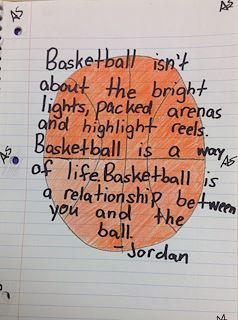 Basketball isn't
about the bright
lights, packed arenas
and highlight reels.
Basketball is a way
of life. Basketball is
a relationship between
you and the
ball.
-Jordan